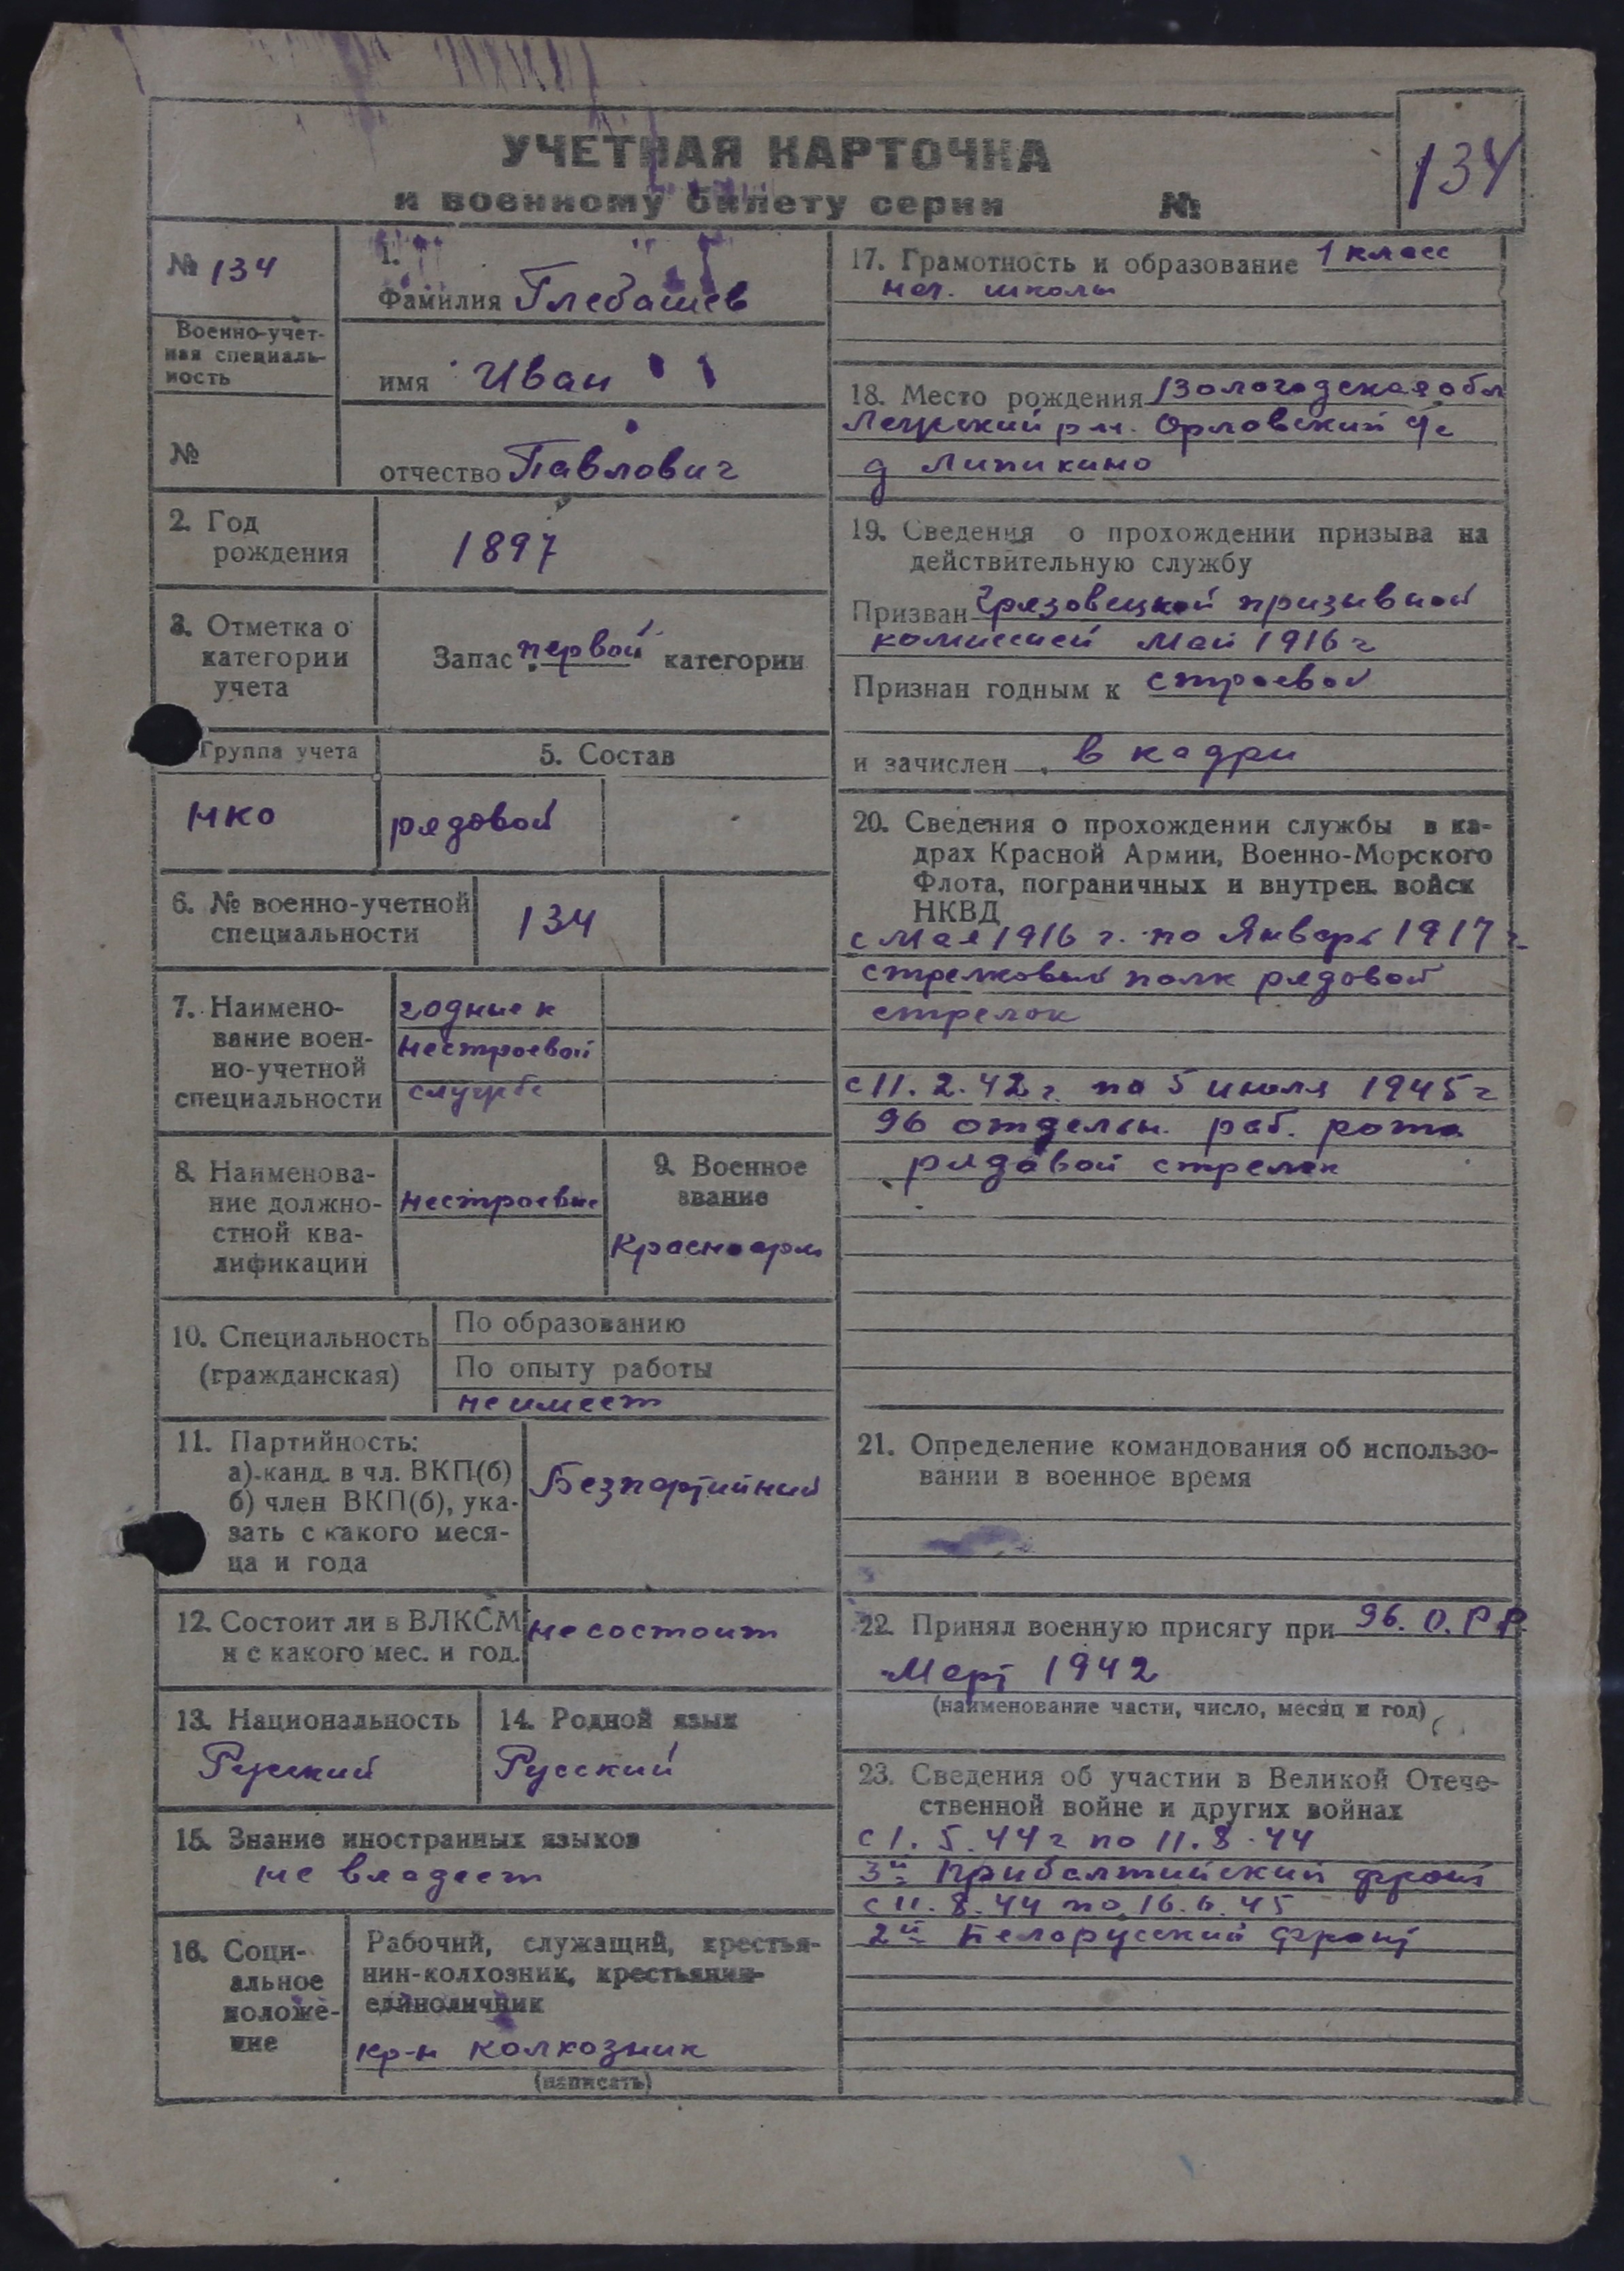 УЧЕТНАЯ КАРТОЧКА
к военному билету серии №
134
№ 134
Военно-учет-
ная специаль-
ность
№
1.
Фамилия Глебашев
имя Иван
отчество Павлович
2. Год
рождения
1897
3. Отметка о
категории
учета
Запас первой категории
Группа учета
5. Состав
нко
рядовой
6. № военно-учетной
специальности
134
7. Наимено-
вание воен-
но-учетной
специальности
годные к
нестроевой
службе
8. Наименова-
ние должно-
стной ква-
лификации
нестроевые
9. Военное
звание
Красноарм
10. Специальность
(гражданская)
По образованию
По опыту работы
не имеет
11. Партийность:
а) канд. в чл. ВКП(б)
б) член ВКП(б), ука-
зать с какого меся-
ца и года
Безпартийный
12. Состоит ли в ВЛКСМ
и с какого мес. и год.
не состоит
13. Национальность
Русский
14. Родной язык
Русский
15. Знание иностранных языков
не владеет
16. Соци-
альное
положе-
ние
Рабочий, служащий, крестья-
нин-колхозник, крестьянин-
единоличник
кр-н колхозник
(написать)
17. Грамотность и образование 1 класс
нач. школы
18. Место рождения Вологодская обл
рн. Орловский с/с
д Липикино
19. Сведения о прохождении призыва на
действительную службу
Призван Грязовецкой призывной
комиссией май 1916 г
Признан годным к строевой
и зачислен в кадры
20. Сведения о прохождении службы в ка-
драх Красной Армии, Военно-Морского
Флота, пограничных и внутрен. войск
НКВД
с мая 1916 г. по Январь 1917 г.
стрелковый полк рядовой
стрелок
с 11.2.42 г. по 5 июля 1945 г
96 отдельн. раб. рота
рядовой стрелок
21. Определение командования об использо-
вании в военное время
22. Принял военную присягу при 96. О.Р.Р.
Март 1942
(наименование части, число, месяц и год)
23. Сведения об участии в Великой Отече-
ственной войне и других войнах
с 1.5.44 г по 11.8.44
3й Прибалтийский фронт
с 11.8.44 по 16.6.45
2й Белорусский фронт